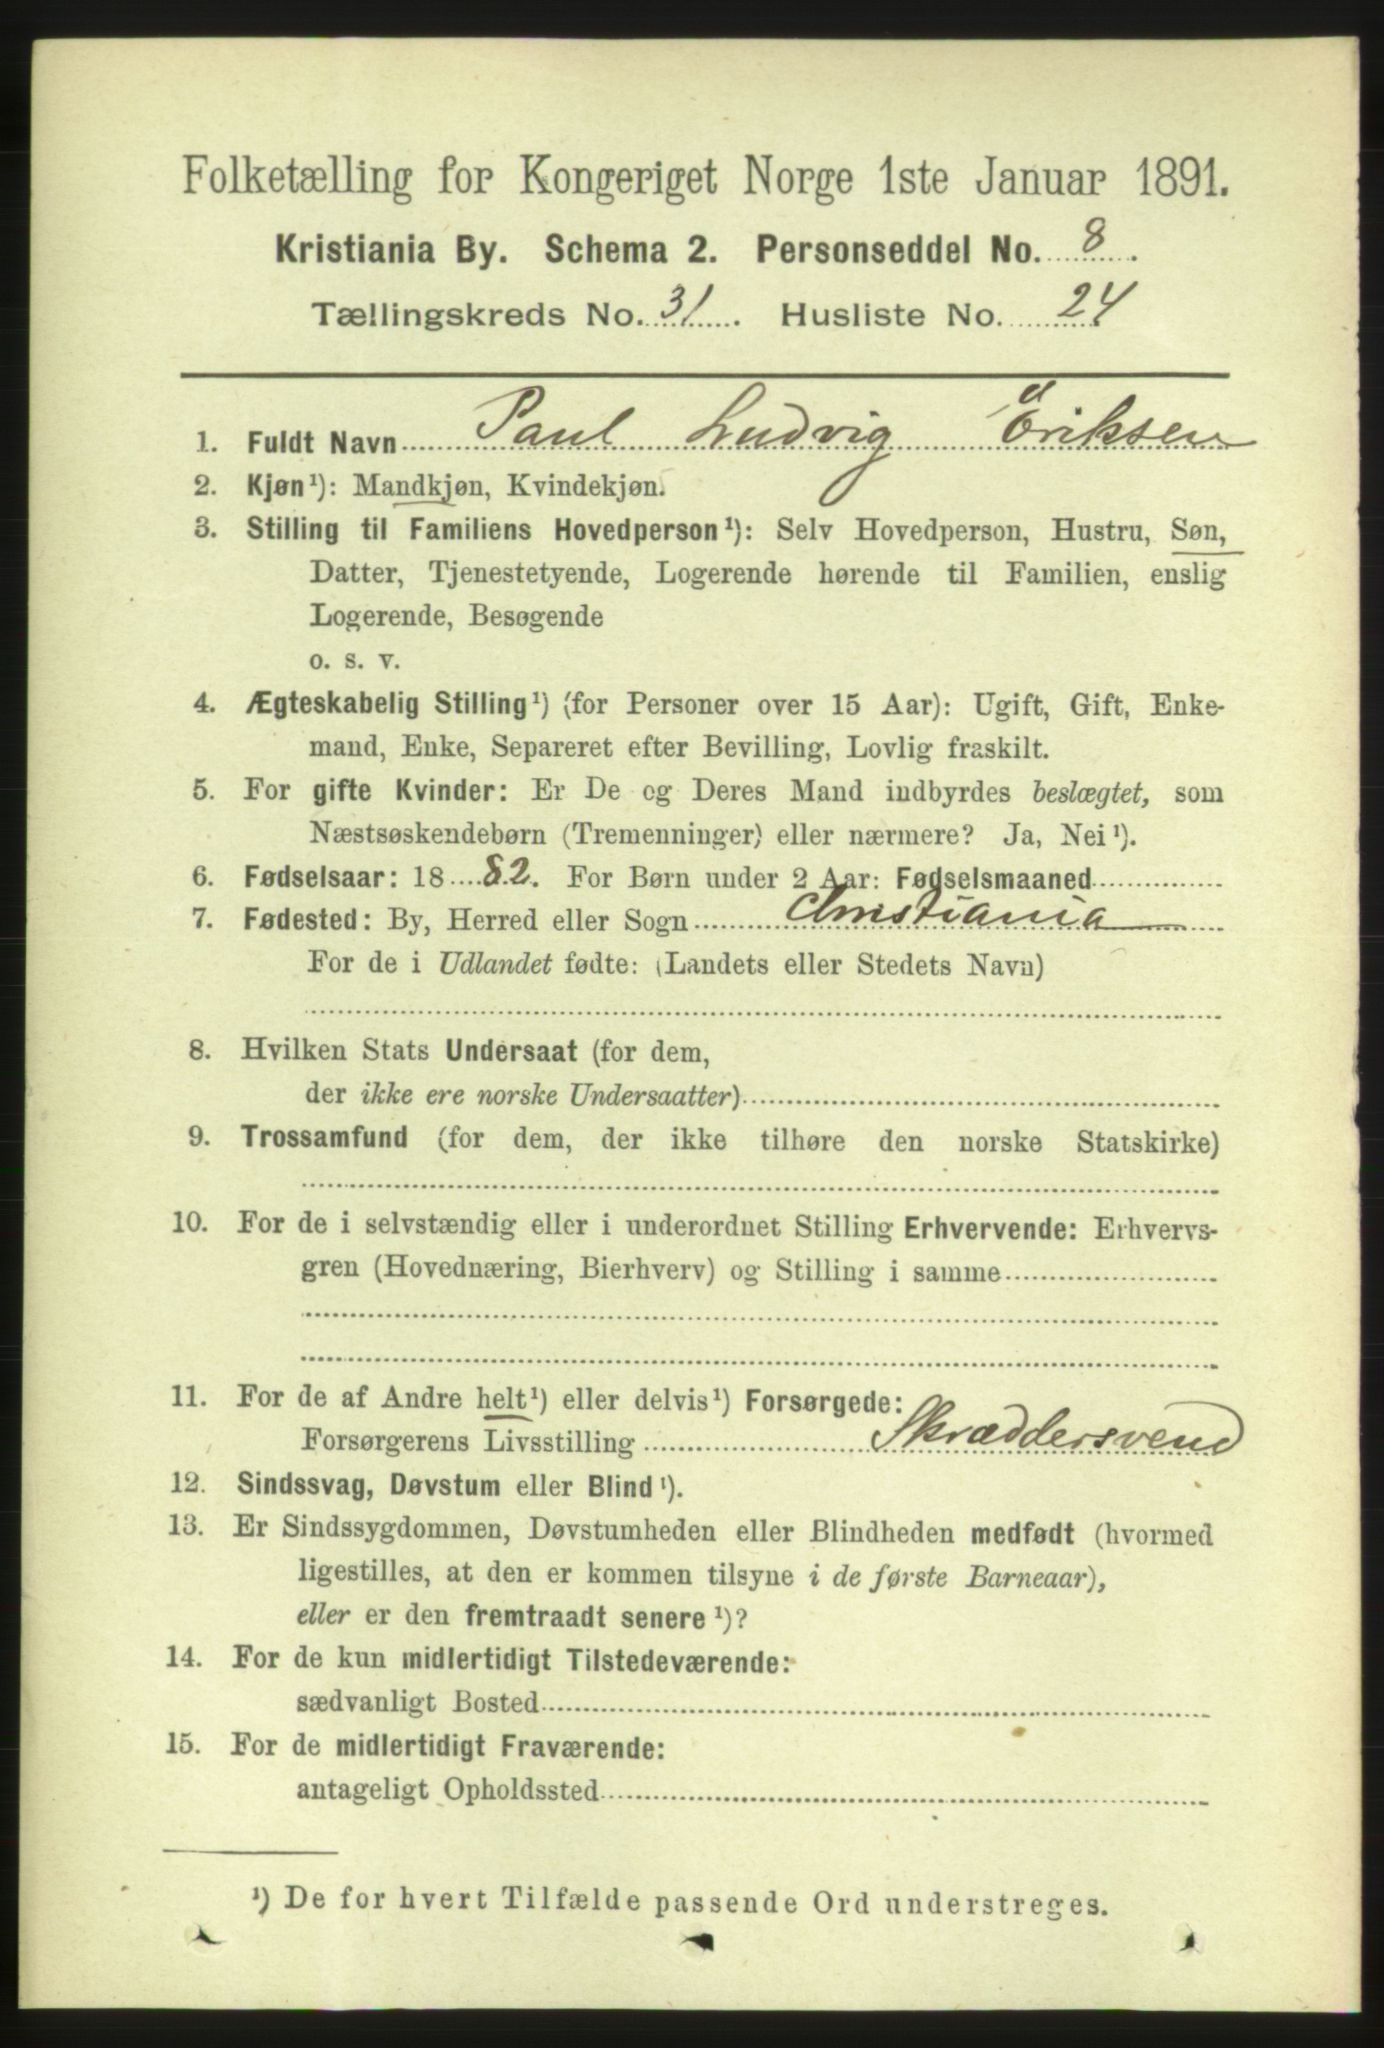 Folketælling for Kongeriget Norge 1ste Januar 1891.
Kristiania By. Schema 2. Personseddel No. 8.
Tællingskreds No. 31. Husliste No. 24
1. Fuldt Navn Paul Ludvig Eriksen
2. Kjøn¹): Mandkjøn, Kvindekjøn.
3. Stilling til Familiens Hovedperson¹): Selv Hovedperson, Hustru, Søn,
Datter, Tjenestetyende, Logerende hørende til Familien, enslig
Logerende, Besøgende
o. s. v.
4. Ægteskabelig Stilling¹) (for Personer over 15 Aar): Ugift, Gift, Enke-
mand, Enke, Separeret efter Bevilling, Lovlig fraskilt.
5. For gifte Kvinder: Er De og Deres Mand indbyrdes beslægtet, som
Næstsøskendebørn (Tremenninger) eller nærmere? Ja, Nei¹).
6. Fødselsaar: 1882. For Børn under 2 Aar: Fødselsmaaned
7. Fødested: By, Herred eller Sogn Christiania
For de i Udlandet fødte: (Landets eller Stedets Navn)
8. Hvilken Stats Undersaat (for dem,
der ikke ere norske Undersaatter)
9. Trossamfund (for dem, der ikke tilhøre den norske Statskirke)
10. For de i selvstændig eller i underordnet Stilling Erhvervende: Erhvervs-
gren (Hovednæring, Bierhverv) og Stilling i samme
11. For de af Andre helt¹) eller delvis¹) Forsørgede:
Forsørgerens Livsstilling Skræddersvend
12. Sindssvag, Døvstum eller Blind¹).
13. Er Sindssygdommen, Døvstumheden eller Blindheden medfødt (hvormed
ligestilles, at den er kommen tilsyne i de første Barneaar),
eller er den fremtraadt senere¹)?
14. For de kun midlertidigt Tilstedeværende:
sædvanligt Bosted
15. For de midlertidigt Fraværende:
antageligt Opholdssted
¹) De for hvert Tilfælde passende Ord understreges.